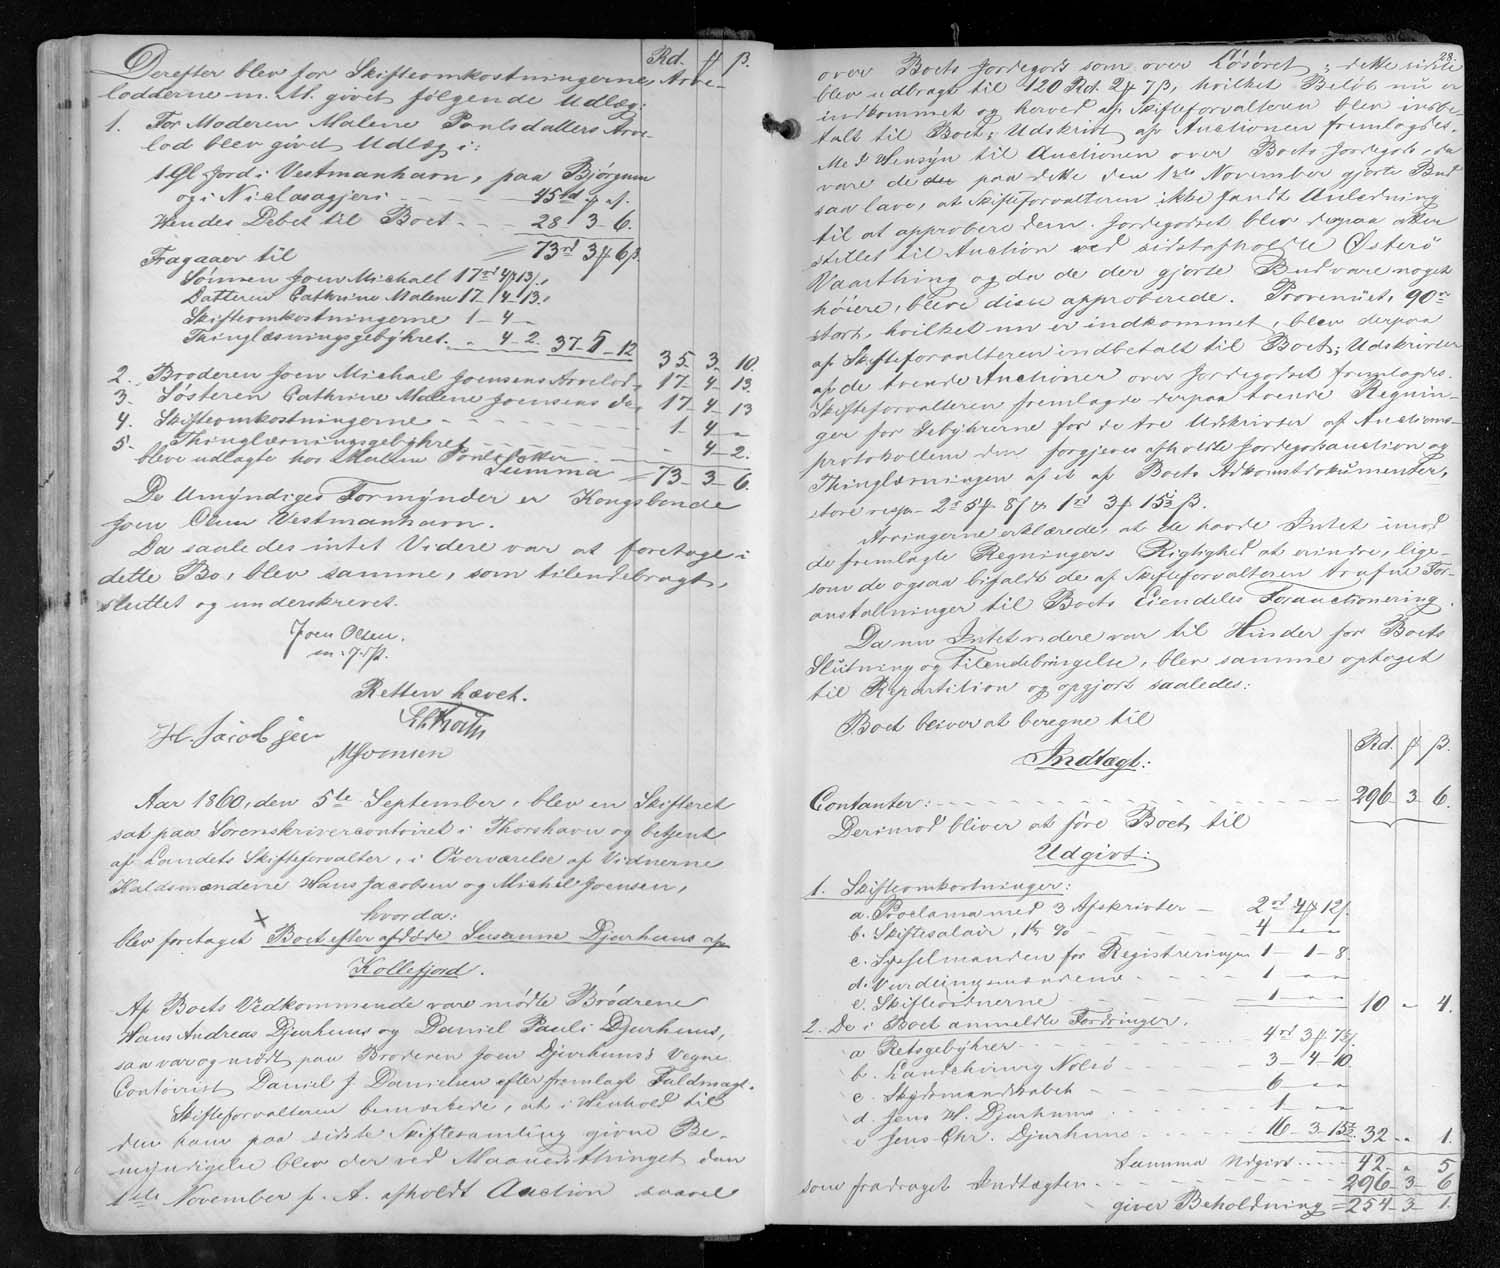 Rd. ƒ β.
Derefter blev for Skifteomkostningerne, Arve-
lodderne m. M. givet følgende Udlæg:
1. For Moderen Malene Poulsdatters Arve-
lod blev givet Udlæg i:
1 Gl. Jord i Vestmanhavn, paa Bjørgum
og i Niclasagjeri - - - 45 rd ƒ β.
Hendes Debet til Boet - - - 28 3 6.
= 73 rd 3 ƒ 6 β.
Fragaaer til
Sønnen Joen Michael 17 rd 4 ƒ 13 β.
Datteren Cathrine Malene 17 - 4 - 13.
Skifteomkostningerne 1 - 4 -
Thinglæsningsgebyhret. - 4 - 2. 37 - 5 - 12 35 - 3 - 10.
2. Broderen Joen Michael Joensens Arvelod - 17 - 4 - 13.
3. Søsteren Cathrine Malene Joensens do - 17 - 4 - 13
4. Skifteomkostningerne - - - - 1 - 4 -
5. Thinglæsningsgebyhret - - - 4 - 2.
bleve udlagte hos Malene Pouls
Summa = 73 - 3 - 6.
De Umyndiges Formynder er Kongsbonde
Joen Olsen Vestmanhavn.
Da saaledes intet Videre var at foretage i
dette Bo, blev samme, som tilendebragt,
sluttet og underskrevet.
Joen Olsen.
m. f. P.
Retten hævet.
H. Jacobsen
MJoensen
Aar 1860, den 5te September, blev en Skifteret
sat paa Sorenskrivercontoiret i Thorshavn og betjent
af Landets Skifteforvalter, i Overværelse af Vidnerne
Kaldsmændene Hans Jacobsen og Michel Joensen,
hvorda:
blev foretaget Boet efter afdøde Susanne Djurhuus af
Kollefjord.
Af Boets Vedkommende vare mødte Brødrene
Hans Andreas Djurhuus og Daniel Pauli Djurhuus,
saa var og mødt paa Broderen Joen Djurhuus's Vegne
Contoirist Daniel J. Danielsen efter fremlagt Fuldmagt.
Skifteforvalteren bemærkede, at i Henhold til
den ham paa sidste Skiftesamling givne Be-
myndigelse blev der ved Maanedsthinget den
1ste November f. A. afholdt Auction saavel
28.
over Boets Jordegods som over Løsøret; dette sidste
blev udbragt til 120 Rd. 2 ƒ 7 β, hvilket Beløb nu er
indkommet og herved af Skifteforvalteren blev indbe-
talt til Boet; Udskrivt af Auctionen fremlagdes.
Med Hensyn til Auctionen over Boets Jordegods, da
vare de paa dette den 1ste November gjorte Bud
saa lave, at Skifteforvalteren ikke fandt Anledning
til at approbere dem. Jordegodset blev derpaa atter
stillet til Auction ved sidstafholdte Østerø
Vaarthing og da de der gjorte Bud vare noget
høiere, bleve disse approberede. Provenuet, 90 rd
stort, hvilket nu er indkommet, blev derpaa
af Skifteforvalteren indbetalt til Boet; Udskrivter
af de tvende Auctioner over Jordegodset fremlagdes.
Skifteforvalteren fremlagde derpaa tvende Regnin-
ger for Gebyhrerne for de tre Udskrivter af Auctions-
protokollen den forgjeves afholdte Jordegodsauction og
Thinglæsningen af et af Boets Adkomstdokumenter,
store resp. 2 rd 5 ƒ 8 β og 1 rd 3 ƒ 15½ β.
Arvingerne erklærede, at de havde Intet imod
de fremlagte Regningers Rigtighed at erindre, lige-
som de ogsaa bifaldt de af Skifteforvalteren trufne For-
anstaltninger til Boets Eiendeles Forauctionering.
Da nu Intet videre var til Hinder for Boets
Slutning og Tilendebringelse, blev samme optaget
til Repartition og opgjort saaledes:
Boet bliver at beregne til
Rd. ƒ β.
Indtægt:
Contanter: - - - - - 296 - 3 - 6.
Derimod bliver at føre Boet til
Udgivt:
1. Skifteomkostninger:
a. Proclama med 3 Afskrivter - 2 rd 4 ƒ 12 β.
b. Skiftesalair, 1½ % - - 4 - -
c. Sysselmanden for Registreringen 1 - 1 - 8.
d. Vurderingsmændene - - 1 - -
e. Skiftevidnerne - - - 1 - - 10 - 4.
2. De i Boet anmeldte Fordringer.
a Retsgebyhrer - - - 4 rd 3 ƒ 7½ β.
b. Landchirurg Nolsø - - - 3 - 4 - 10.
c. Skydsmandskabet - - - 6 - -
d Jens H. Djurhuus - - - 1 - -
e Jens Chr. Djurhuus - - - 16 - 3 - 15½. 32 - - 1.
Summa Udgivt - - - 42 - - 5
som fradraget Indtægten - - - 296 - 3 - 6
giver Beholdning = 254 - 3 - 1.